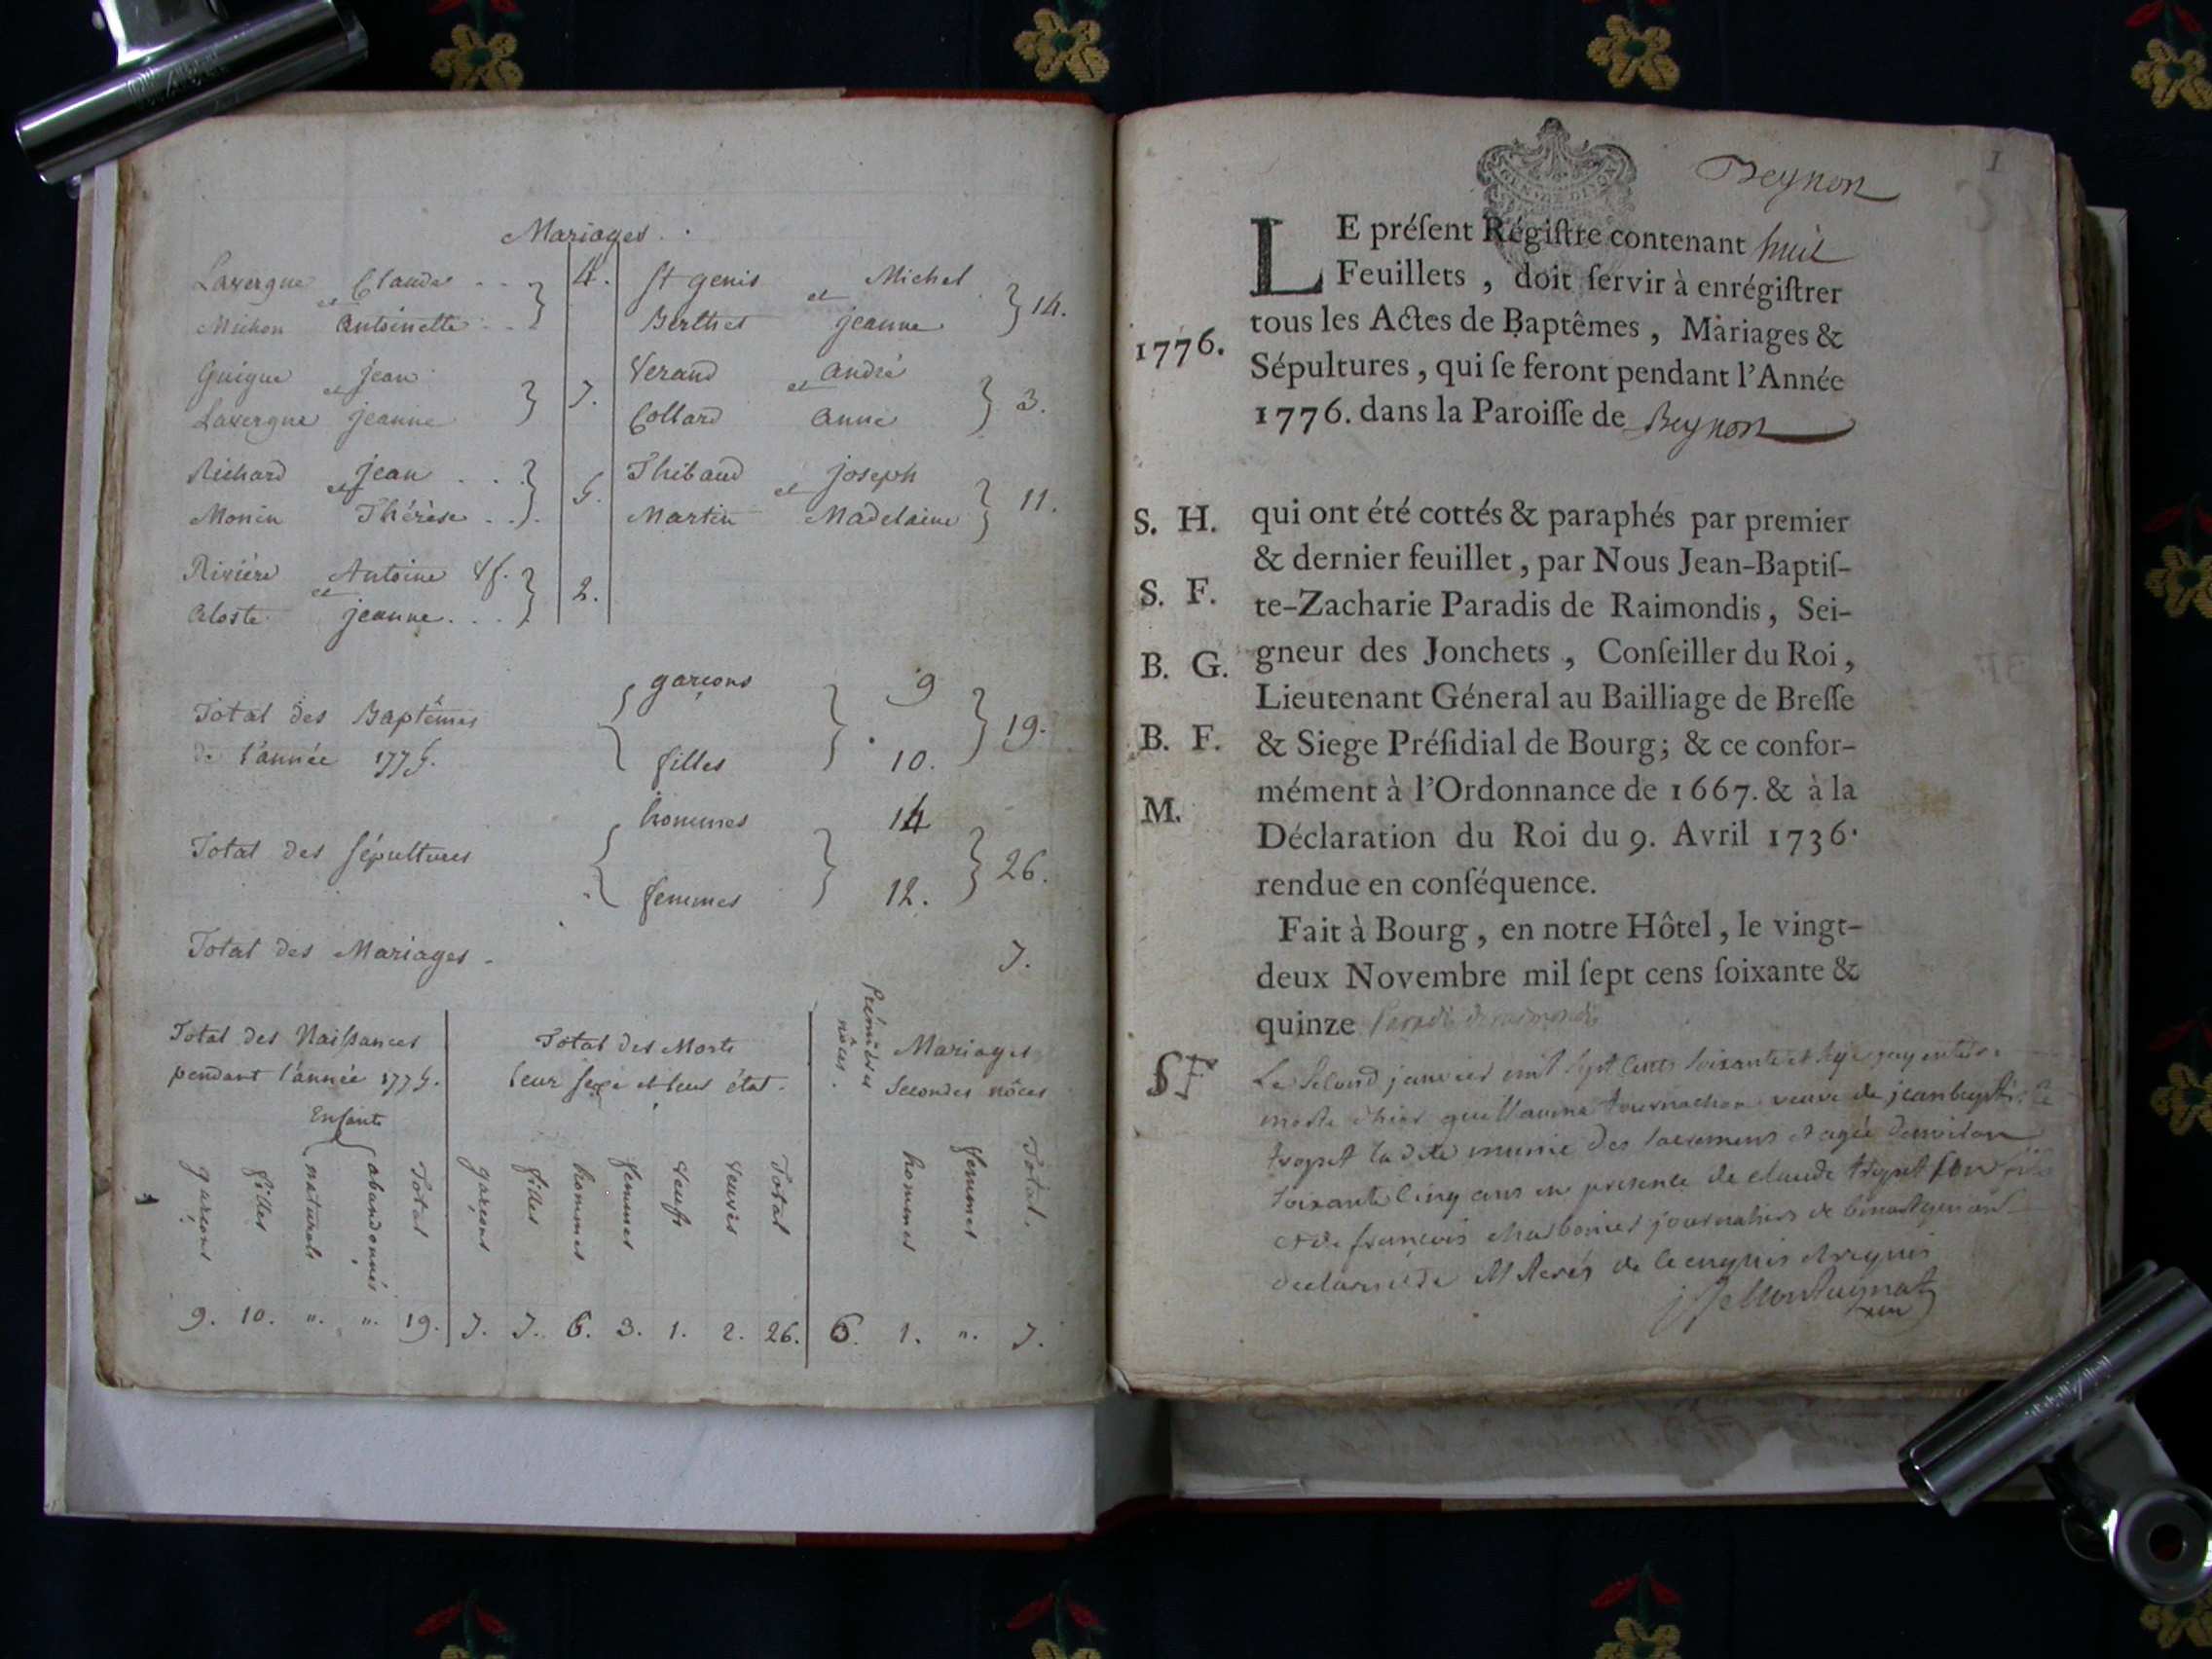 Mariages.
Lavergne Claude . . 4.
et
Michon Antoinette . .
Guigue Jean 7.
et
Lavergne jeanne
Richard jean . . . 5.
et
Monin Thérèse . .
Riviére Antoine Vf. 2.
et
Aloste jeanne . . .
St genis Michel 14.
et
Berthet jeanne
Verand André 3.
et
Collard Anne
Thibaud joseph 11.
et
Martin Madelaine
Total des Baptêmes garçons 9 19.
de l'année 1775. filles 10.
Total des sépultures hommes 14 26.
femmes 12.
Total des Mariages . 7.
Total des Naissances
pendant l'année 1775.
Enfants
garçons filles naturels abandonnés Total
9. 10. ". ". 19.
Total des Morts
leur sexe et leur état.
garçons filles hommes femmes veufs veuves Total
7. 7. 6. 3. 1. 2. 26.
Premières nôces.
Mariages
Secondes nôces
hommes femmes Total.
6. 1. ". 7.
1
Beynon
LE préſent Régiſtre contenant huit
Feuillets, doit ſervir à enrégiſtrer
tous les Actes de Baptêmes, Mariages &
1776.
Sépultures, qui ſe feront pendant l'Année
1776. dans la Paroiſſe de Beynon
S. H. qui ont été cottés & paraphés par premier
& dernier feuillet, par Nous Jean-Baptiſ-
S. F. te-Zacharie Paradis de Raimondis, Sei-
B. G. gneur des Jonchets, Conſeiller du Roi,
Lieutenant Géneral au Bailliage de Breſſe
B. F. & Siege Préſidial de Bourg; & ce confor-
mément à l'Ordonnance de 1667. & à la
M. Déclaration du Roi du 9. Avril 1736.
rendue en conſéquence.
Fait à Bourg, en notre Hôtel, le vingt-
deux Novembre mil ſept cens ſoixante &
quinze Paradis de raimondis
SF Le Second janvier mil Sept Cents Soixante et
morte d'hier guillaume tournachon veuve de jeanbaptiste
la dite munie des sacremens et agée d'environ
soixante cinq ans en presence de claude son fils
et de françois charbonier journaliers de
de ce enquis et requis